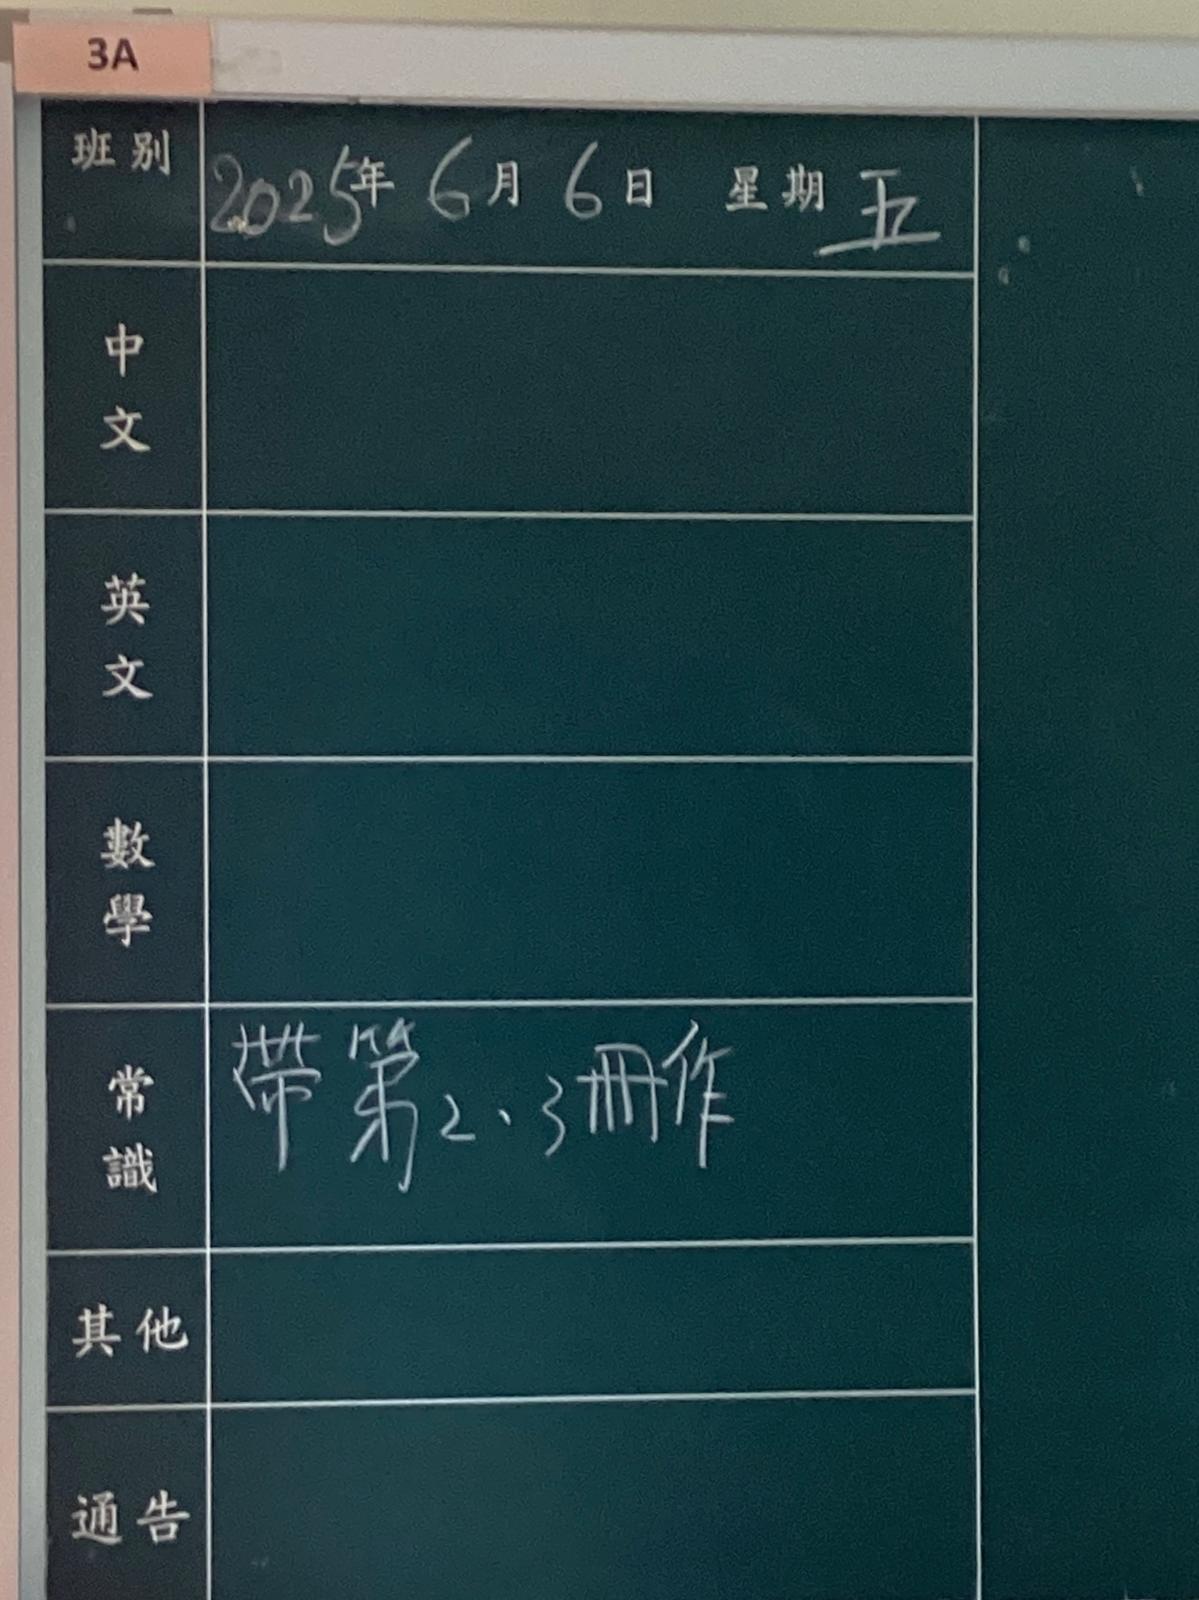 3A
班別 2025年 6月 6日 星期 五
中文
英文
數學
常識 帶第2、3冊作
其他
通告